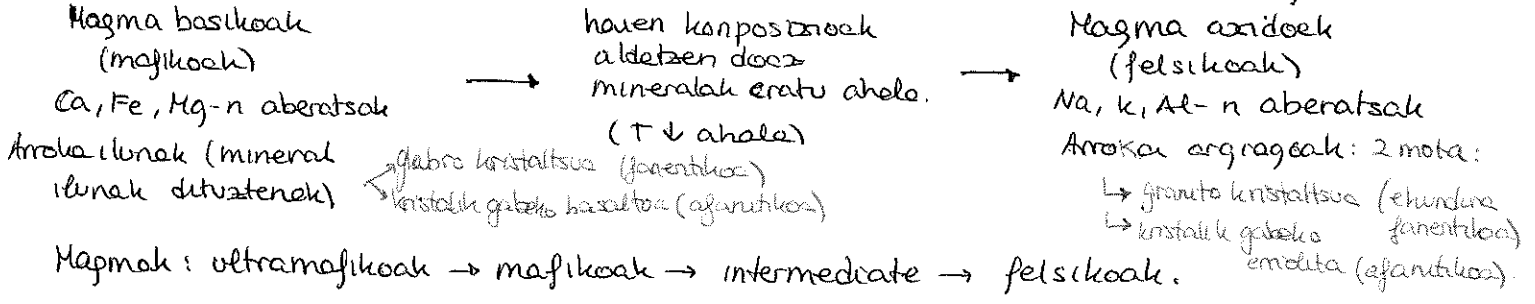 Magma basikoak
(mafikoak)
Ca, Fe, Mg-n aberatsak
Arroka ilunak (mineral
ilunak dituztenak)
gabro kristaltsua (faneritikoa)
kristalik gabeko basaltoa (afanitikoa)
→
hauen konposizioak
aldatzen doaz
mineralak eratu ahala.
(T ↓ ahala)
→
Magma azidoak
(felsikoak)
Na, K, Al-n aberatsak
Arrokar argiagoak: 2 mota:
↳ granito kristaltsua (ehundura faneritikoa)
↳ kristalik gabeko (afanitikoa)
Magmak: ultramafikoak → mafikoak → intermediate → felsikoak.